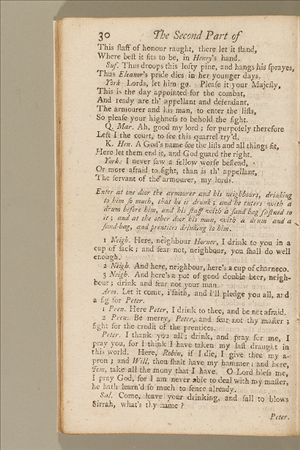 30 The Second Part of
This staff of honour raught, there let it stand,
Where best it fits to be, in Henry's hand.
Suf. Thus droops this lofty pine, and hangs his sprayes,
Thus Eleanor's pride dies in her younger days.
York Lords, let him go. Please it your Majesty,
This is the day appointed for the combat,
And ready are th' appellant and defendant,
The armourer and his man, to enter the lists,
So please your highness to behold the fight.
Q. Mar. Ah, good my lord; for purposely therefore
Left I the court, to see this quarrel try'd.
K. Hen. A God's name see the lists and all things fit,
Here let them end it, and God guard the right.
York. I never saw a fellow worse bestead,
Or more afraid to fight, than is th' appellant,
The servant of the armourer, my lords.
Enter at one door the armourer and his neighbours, drinking
to him so much, that he is drunk; and he enters with a
drum before him, and his staff with a sand-bag fastned to
it; and at the other door his man, with a drum and a
sand-bag, and prentices drinking to him.
1 Neigh. Here, neighbour Horner, I drink to you in a
cup of sack; and fear not, neighbour, you shall do well
enough.
2 Neigh. And here, neighbour, here's a cup of charneco.
3 Neigh. And here's a pot of good double beer, neigh-
bour; drink and fear not your man.
Arm. Let it come, i'faith, and I'll pledge you all, and
a fig for Peter.
1 Pren. Here Peter, I drink to thee, and be not afraid.
2 Pren. Be merry, Peter, and fear not thy master;
fight for the credit of the prentices.
Peter. I thank you all; drink, and pray for me, I
pray you, for I think I have taken my last draught in
this world. Here, Robin, if I die, I give thee my a-
pron; and Will, thou shalt have my hammer; and here,
Tom, take all the mony that I have. O Lord bless me,
I pray God, for I am never able to deal with my master,
he hath learn'd so much to fence already.
Sal. Come, leave your drinking, and fall to blows
Sirrah, what's thy name?
Peter.